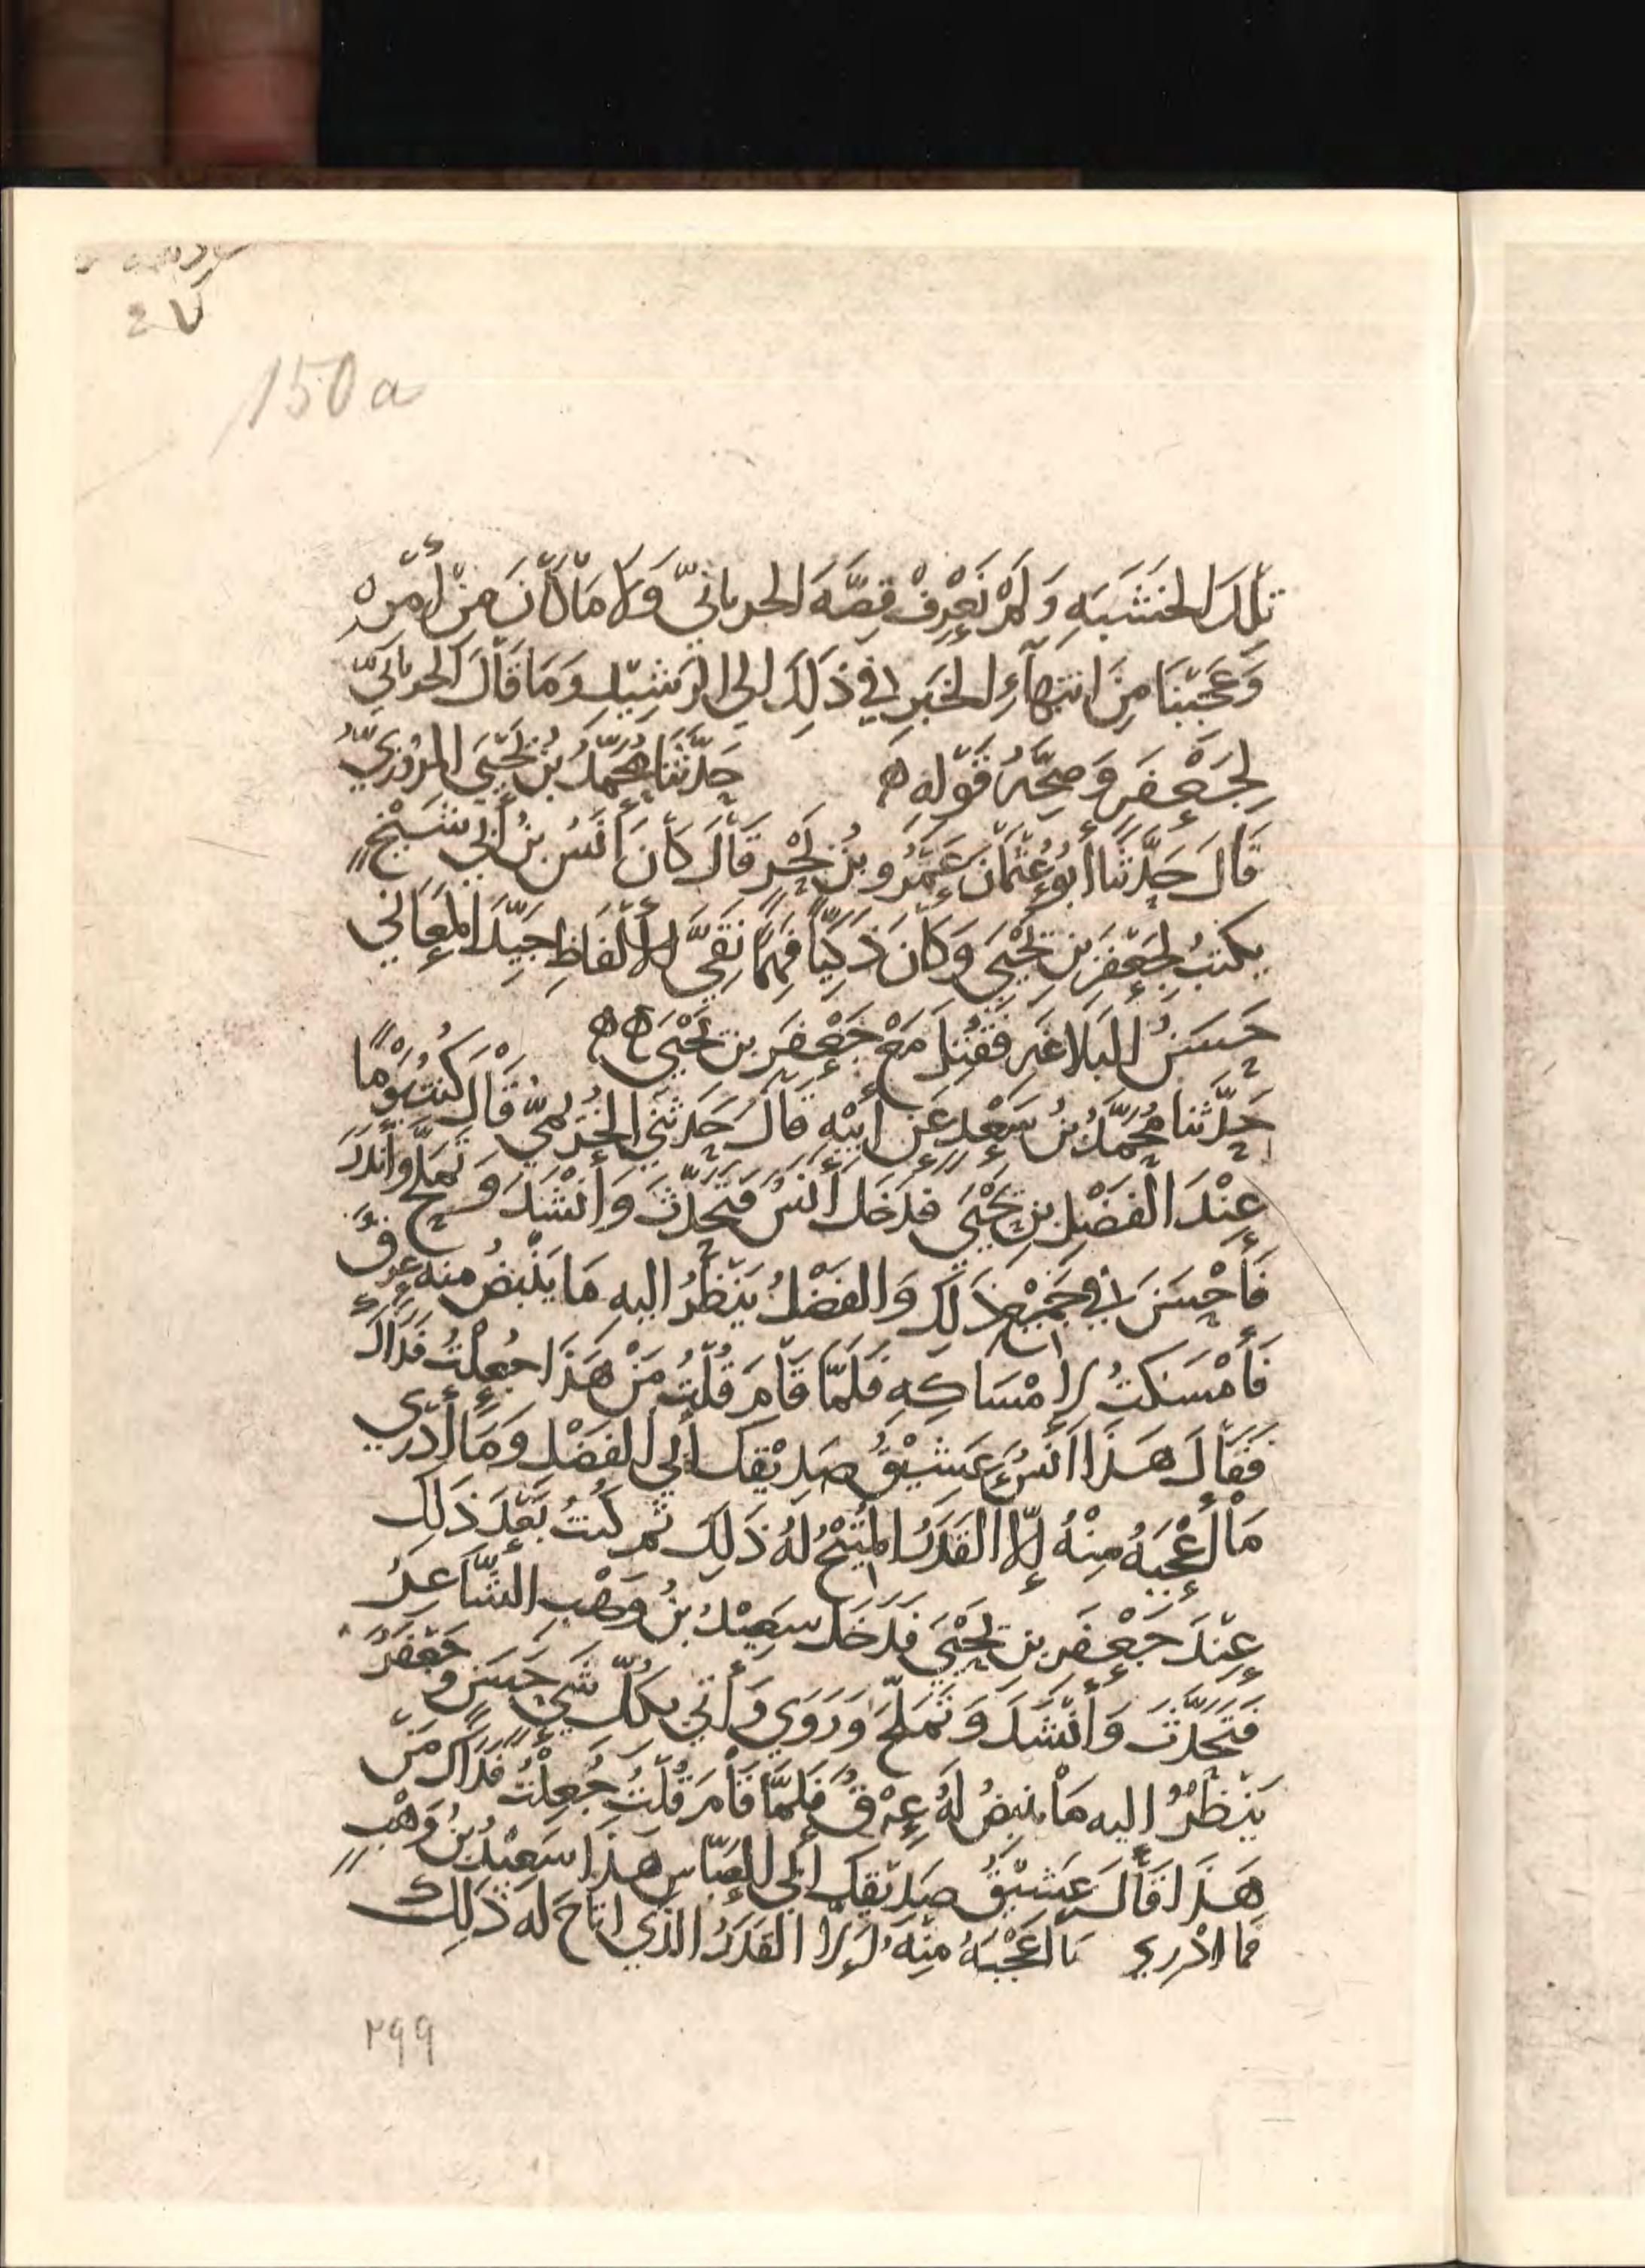 150a
تِلْكَ الخَشَبَهِ وَلَمْ نَعْرِفْ قِصَّهَ الحرمانيّ وَلَا مَا كَانَ مِنْ أَمْرِهْ
وَعَجِبْنَا مِنَ انتِهَآءِ الخَبَرِ في ذَلِكَ الي الرَشِيْدِ وَمَا قَالَ الحرمانيّ
لِجَعْفَرٍ وَصِحَّهُ قَوْلِهِ ه حَدَّثَنَا مُحَمَّدُ بنُ يَحْيَى المروَزِيّ
قَالَ حَدَّثَنَا أَبُو عُثْمَانَ عَمْرُو بْنُ بَحْرٍ قَالَ كَانَ أَنَسُ بنُ أَبي شَيْخٍ
يكتبُ لِجَعْفَرِ بنِ يَحْيَى وَكَانَ ذَكِيّاً فَهِمًا نَقِيَّ الأَلفَاظِ جَيِّدَ المَعَاني
حَسَنُ البَلَاغَهِ فَقُتِلَ مَعْ جَعْفَرِ بنِ يَحْيَى ه ه
حَدَّثنا مُحَمَّدُ بنُ سَعْدٍ عَنْ أَبيْهِ قَالَ حَدثَنِي قَالَ كُنتُ يَوْمًا
عِنْدَ الفَضْلِ بنِ يَحْيَى فَدَخَلَ أَنَسُ فَتَحَدَّثَ وَأَنْشَدَ وَتَمَلَّحَ وَأَندَرَ
فَأَحْسَنَ في جَمِيْع ذَلِكَ وَالفَضْلُ يَنْظُرُ اليهِ مَا يَنْبُضُ منهُ عِرقٌ
فَأَمْسَكتُ لِإِمْسَاكِهِ فَلَمَّا قَامَ قُلْتُ مَنْ هَذَا جُعِلْتُ فَدَاكَ
فَقَالَ هَذَا أَنَسُ عَشِيْقُ صَدِيْقِكَ أَبي الفَضْل وَمَا أَدري
مَا أَعْجَبَهُ مِنْهُ إِلَّا القَدَرُ المُتِيْحُ لَهُ ذَلِكَ ثم كُنتُ بَعْدَ ذَلِكَ
عِنْدَ جَعْفَرِ بنِ يَحْيَى فَدَخَلَ سَعِيْدُ بنُ وَهْبٍ الشَّاعِرُ
فَتَحَدَّثَ وَأَنْشَدَ وَتَمَلَّحَ وَرَوَي وَأَتي بِكلِّ شَيءٍ حَسَنٍ وَجَعْفَرُ
يَنْظُرُ اليه مَا ينبِضُ لَهُ عِرْقٌ فَلَمَّا قَامَ قُلْتُ جُعِلْتُ فَدَاكَ مَنْ
هَذَا قَالَ عَشِيْقُ صَدِيْقِكَ أَبي العَبَّاسِ هَذَا سَعِيْدُ بنُ وَهْبٍ
فما ادْري مَا أَعْجَبَهُ مِنْهُ إِلَّا القَدَرُ الذي اتاحَ لَه ذَلِكَ
٢٩٩